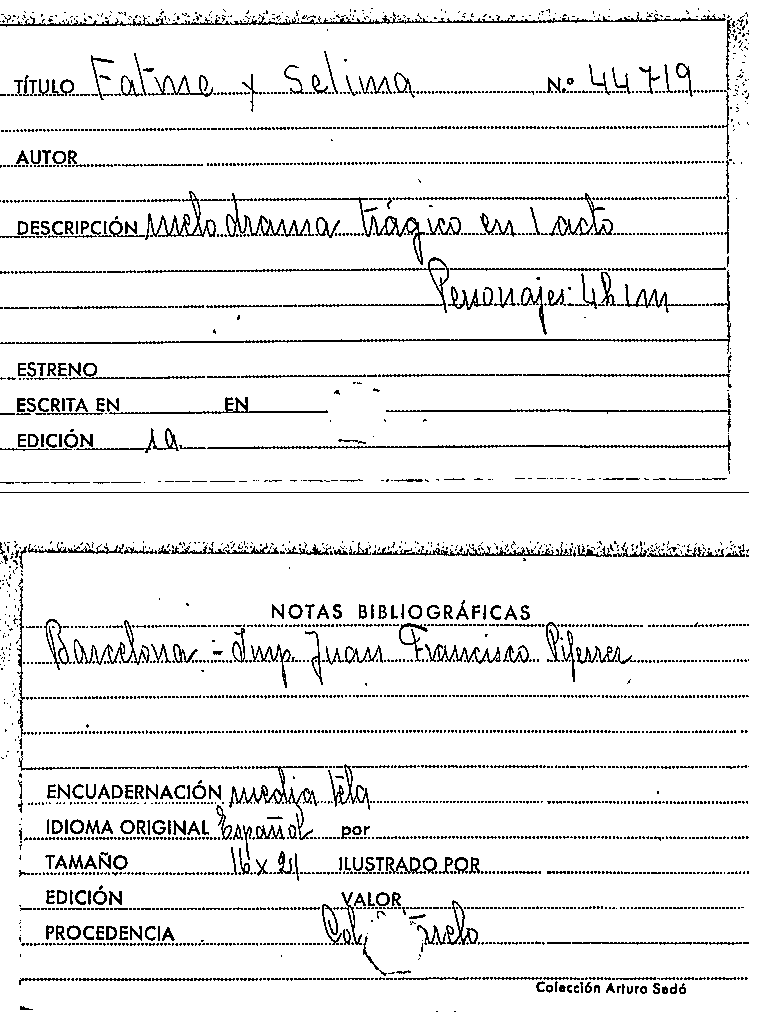 TÍTULO Fatme y Selima N.º 44719
AUTOR
DESCRIPCIÓN melodrama trágico en 1 acto
Personajes: 4h 1m
ESTRENO
ESCRITA EN EN
EDICIÓN 1a
NOTAS BIBLIOGRÁFICAS
Barcelona - Imp. Juan Francisco Piferrer
ENCUADERNACIÓN media tela
IDIOMA ORIGINAL Español por
TAMAÑO 16 x 21 ILUSTRADO POR
EDICIÓN VALOR
PROCEDENCIA Col
Colección Arturo Sedó